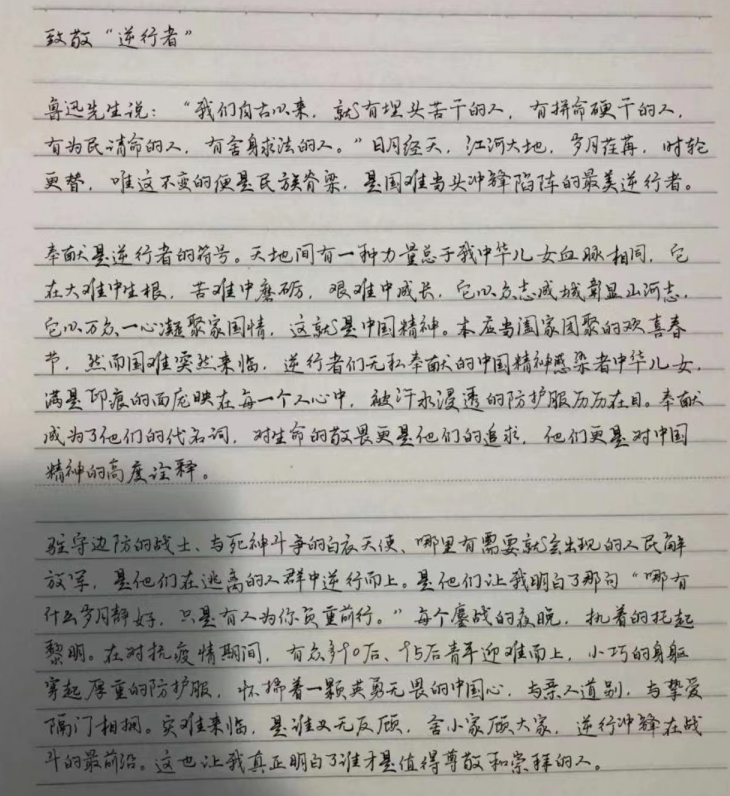 致敬“逆行者”
鲁迅先生说：“我们自古以来，就有埋头苦干的人，有拼命硬干的人，
有为民请命的人，有舍身求法的人。”日月经天，江河大地，岁月荏苒，时轮
更替，唯这不变的便是民族脊梁，是国难当头冲锋陷阵的最美逆行者。
奉献是逆行者的符号。天地间有一种力量总于我中华儿女血脉相同，它
在大难中生根，苦难中磨砺，艰难中成长，它以众志成城彰显山河志，
它以万众一心凝聚家国情，这就是中国精神。本应当阖家团聚的欢喜春
节，然而国难突然来临，逆行者们无私奉献的中国精神感染者中华儿女，
满是印痕的面庞映在每一个人心中，被汗水浸透的防护服历历在目。奉献
成为了他们的代名词，对生命的敬畏更是他们的追求，他们更是对中国
精神的高度诠释。
驻守边防的战士、与死神斗争的白衣天使、哪里有需要就会出现的人民解
放军，是他们在逃离的人群中逆行而上。是他们让我明白了那句“哪有
什么岁月静好，只是有人为你负重前行。”每个鏖战的夜晚，执着的托起
黎明。在对抗疫情期间，有众多90后、95后青年迎难而上，小巧的身躯
穿起厚重的防护服，怀揣着一颗英勇无畏的中国心，与亲人道别，与挚爱
隔门相拥。灾难来临，是谁义无反顾，舍小家顾大家，逆行冲锋在战
斗的最前沿。这也让我真正明白了谁才是值得尊敬和崇拜的人。